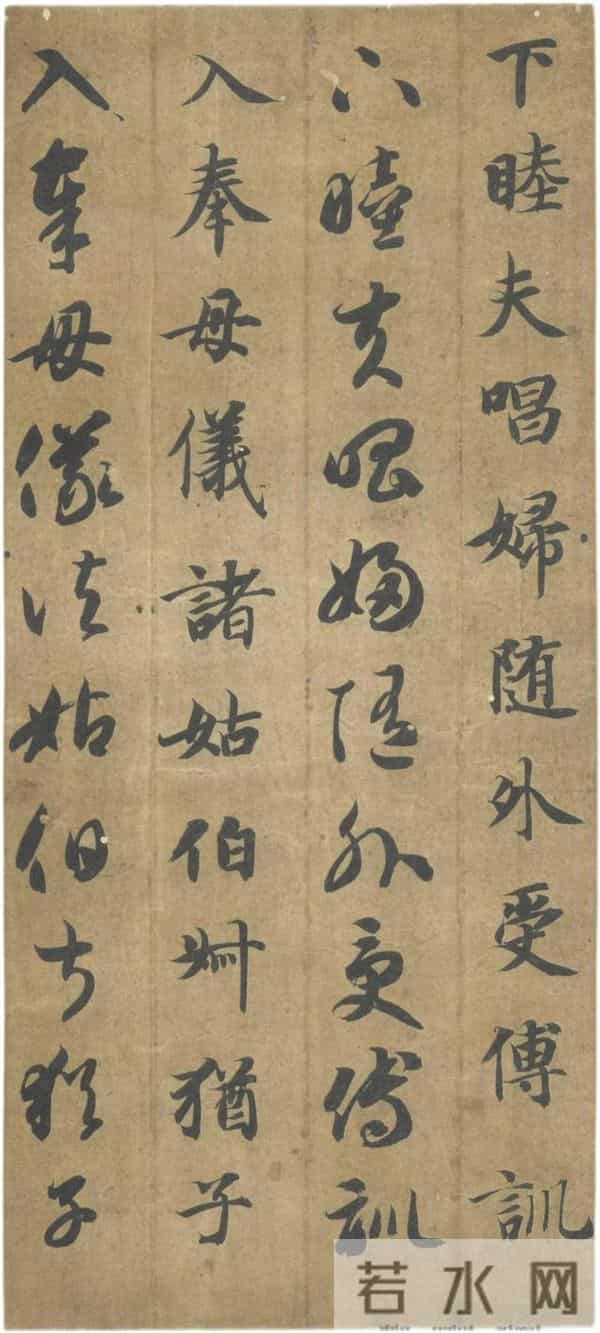 下睦夫唱婦随外受傅訓
下睦夫唱婦随外受傅訓
入奉母儀諸姑伯叔猶子
入奉母儀諸姑伯叔猶子
若水网